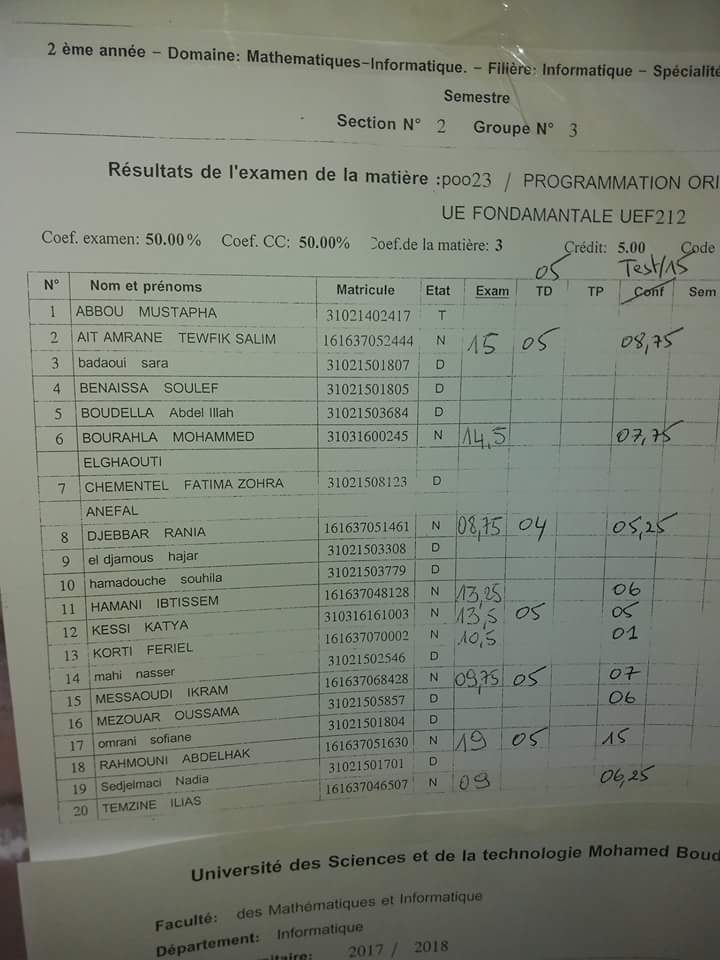 2 ème année – Domaine: Mathematiques-Informatique. – Filière: Informatique – Spécialité
Semestre
Section N° 2 Groupe N° 3
Résultats de l'examen de la matière :poo23 / PROGRAMMATION ORI
UE FONDAMANTALE UEF212
Coef. examen: 50.00% Coef. CC: 50.00% Coef.de la matière: 3 Crédit: 5.00 Code
05 Test/15
N° Nom et prénoms Matricule Etat Exam TD TP Conf Sem
1 ABBOU MUSTAPHA 31021402417 T
2 AIT AMRANE TEWFIK SALIM 161637052444 N 15 05 08,75
3 badaoui sara 31021501807 D
4 BENAISSA SOULEF 31021501805 D
5 BOUDELLA Abdel Illah 31021503684 D
6 BOURAHLA MOHAMMED 31031600245 N 14,5 07,75
ELGHAOUTI
7 CHEMENTEL FATIMA ZOHRA 31021508123 D
ANEFAL
8 DJEBBAR RANIA 161637051461 N 08,75 04 05,25
9 el djamous hajar 31021503308 D
10 hamadouche souhila 31021503779 D
11 HAMANI IBTISSEM 161637048128 N 13,25 06
12 KESSI KATYA 310316161003 N 13,5 05 05
13 KORTI FERIEL 161637070002 N 10,5 01
14 mahi nasser 31021502546 D
15 MESSAOUDI IKRAM 161637068428 N 09,75 05 07
16 MEZOUAR OUSSAMA 31021505857 D 06
17 omrani sofiane 31021501804 D
18 RAHMOUNI ABDELHAK 161637051630 N 19 05 15
19 Sedjelmaci Nadia 31021501701 D
20 TEMZINE ILIAS 161637046507 N 09 06,25
Université des Sciences et de la technologie Mohamed Boud
Faculté: des Mathématiques et Informatique
Département: Informatique
itaire: 2017 / 2018